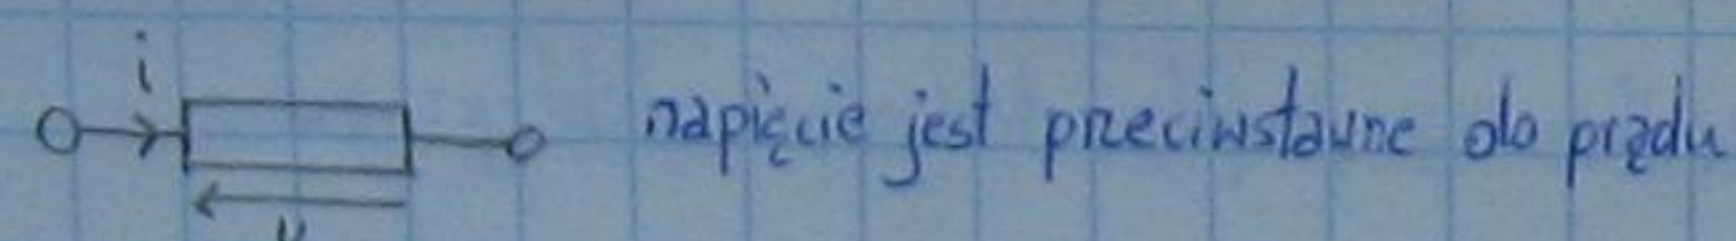 i
napięcie jest przeciwstawne do prądu
u